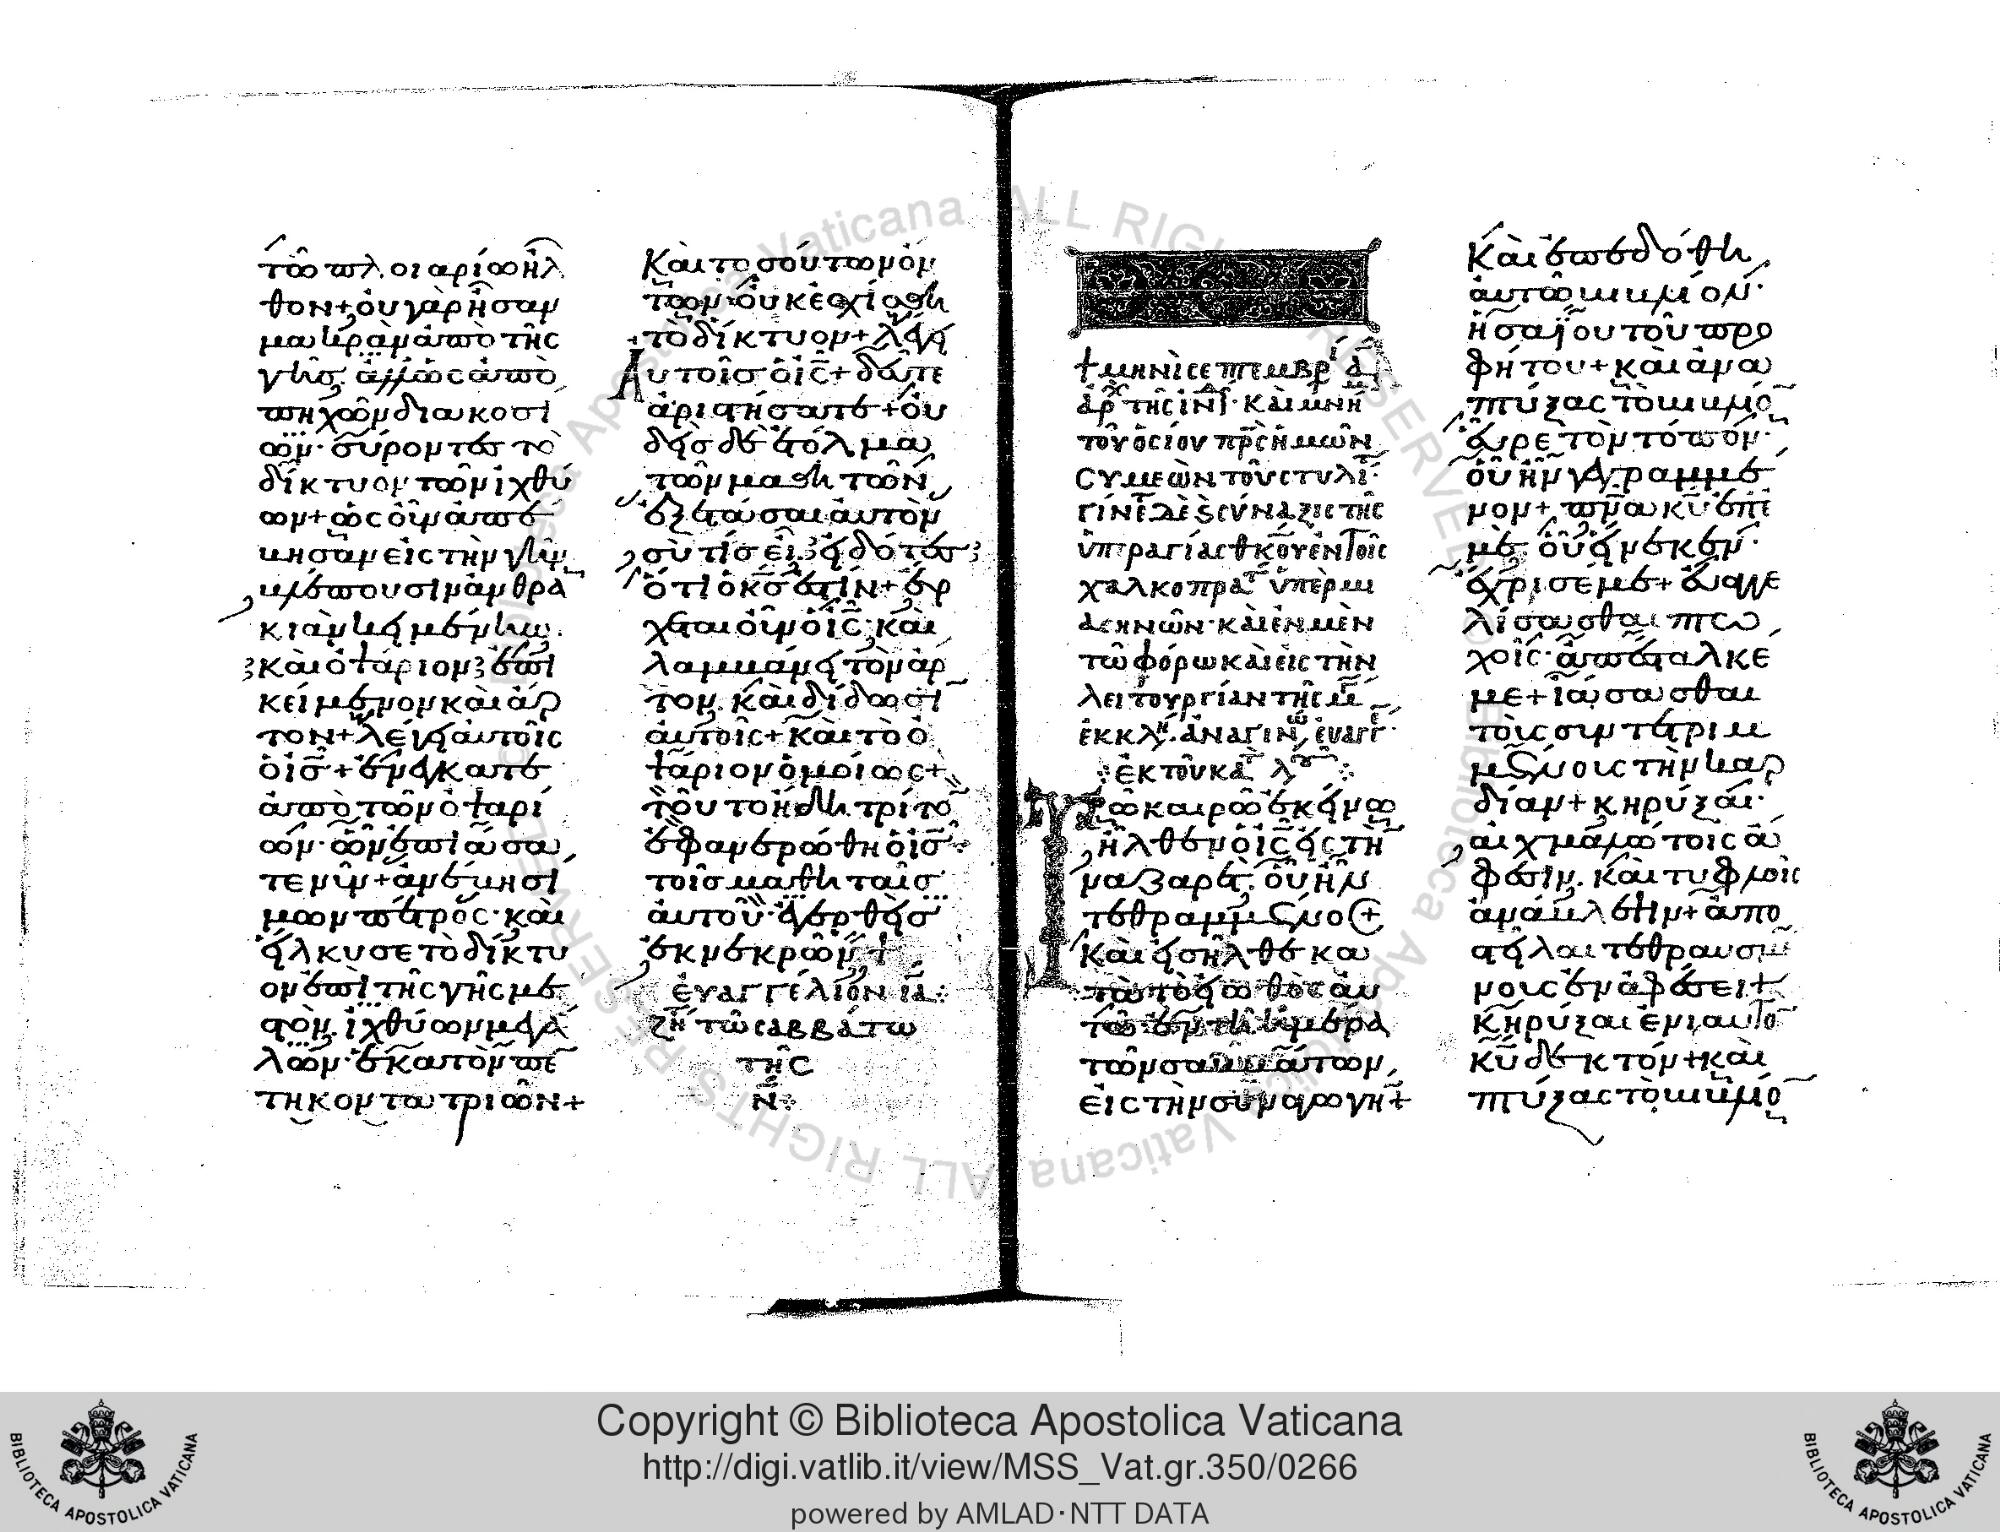 τῶ πλοιαρίω ἦλ
θον+ οὐ γὰρ ἦσαν
μακρὰν ἀπὸ τῆς
γῆς. ἀλλ' ὡς ἀπὸ
πηχῶν διακοσί
ων· σύροντες τὸ
δίκτυον τῶν ἰχθύ
ων+ ὡς οὖν ἀπέ
βησαν εἰς τὴν γῆν
βλέπουσιν ἀνθρα
κιὰν κειμένην.
καὶ ὀψάριον ἐπι
κείμενον καὶ ἄρ
τον+ λέγει αὐτοῖς
ὁ ις+ ἐνέγκατε
ἀπὸ τῶν ὀψαρί
ων· ὧν ἐπιάσα
τε νῦν+ ἀνέβη σι
μων πέτρος· καὶ
εἵλκυσε τὸ δίκτυ
ον ἐπὶ τῆς γῆς με
στὸν ἰχθύων μεγά
λων· ἑκατὸν πε
τηκοντατριῶν+
Καὶ τοσούτων ὄν
των. οὐκ ἐσχίσθη
τὸ δίκτυον+ λέγει
Αὐτοῖς ὁ ις+ δεῦτε
ἀριστήσατε+ οὐ
δεὶς δὲ ἐτόλμα
τῶν μαθητῶν,
ἐξετάσαι αὐτὸν
σὺ τίς εἶ. εἰδότες
ὅτι ὁ κς ἐστίν+ ἔρ
χεται οὖν ὁ ις. καὶ
λαμβάνει τὸν ἄρ
τον. καὶ δίδωσι
αὐτοῖς+ καὶ τὸ ὀ
ψάριον ὁμοίως+
τοῦτο ἤδη τρίτο
ἐφανερώθη ὁ ις
τοῖς μαθηταῖς
αὐτοῦ· ἐγερθεὶς
ἐκ νεκρῶν+
ἐυαγγέλιον ια
ζη τῶ σαββάτω
τῆς
ν
+ μηνὶ σεπτεμβρ α
ἀρχ τῆς ἰνδ· καὶ μνή
τοῦ ὁσίου πρς ἡμῶν
συμεὼν τοῦ στυλι·
γίνε δὲ ἡ σύναξις τῆς
ὑπραγίας θκου ἐν τοῖς
χαλκοπρα ὑπὲρ μι
ασηνῶν· καὶ ἐν μὲν
τῶ φόρω καὶ εἰς τὴν
λειτουργίαν τῆς μ
ἐκκλ. ἀναγιν ἐυαγγ·
ἐκ τοῦ κα λου
Τῶ καιρῶ ἐκείνω
ἦλθεν ὁ ις εἰς τὴ
ναζαρέτ. οὗ ἦν
τεθραμμένος+
Καὶ εἰσῆλθε κα
τὰ τὸ εἰωθὸς αὐ
τῶ. ἐν τῆ ἡμέρα
τῶν σαββάτων,
εἰς τὴν συναγωγὴ+
Καὶ ἐπεδόθη
αὐτῶ βιβλίον·
ἡσαΐου τοῦ προ
φήτου+ καὶ ἀνα
πτύξας τὸ βιβλίο
εὗρε τὸν τόπον·
οὗ ἦν γεγραμμέ
νον+ πνα κυ ἐπ' ἐ
μέ. οὗ εἵνεκεν·
ἔχρισέ με+ εὐαγγε
λίσασθαι πτω
χοῖς· ἀπέσταλκε
με+ ἰάσασθαι
τοὺς συντετριμ
μένους τὴν καρ
δίαν+ κηρύξαι·
αἰχμαλώτοις ἄ
φεσιν. καὶ τυφλοῖς
ἀνάβλεψιν+ ἀπο
στεῖλαι τεθραυσμέ
νους ἐν ἀφέσει+
Κηρύξαι ἐνιαυτὸ
κυ δεκτόν+ καὶ
πτύξας τὸ βιβλίο
Copyright © Biblioteca Apostolica Vaticana
http://digi.vatlib.it/view/MSS_Vat.gr.350/0266
powered by AMLAD·NTT DATA
BIBLIOTECA APOSTOLICA VATICANA
BIBLIOTECA APOSTOLICA VATICANA